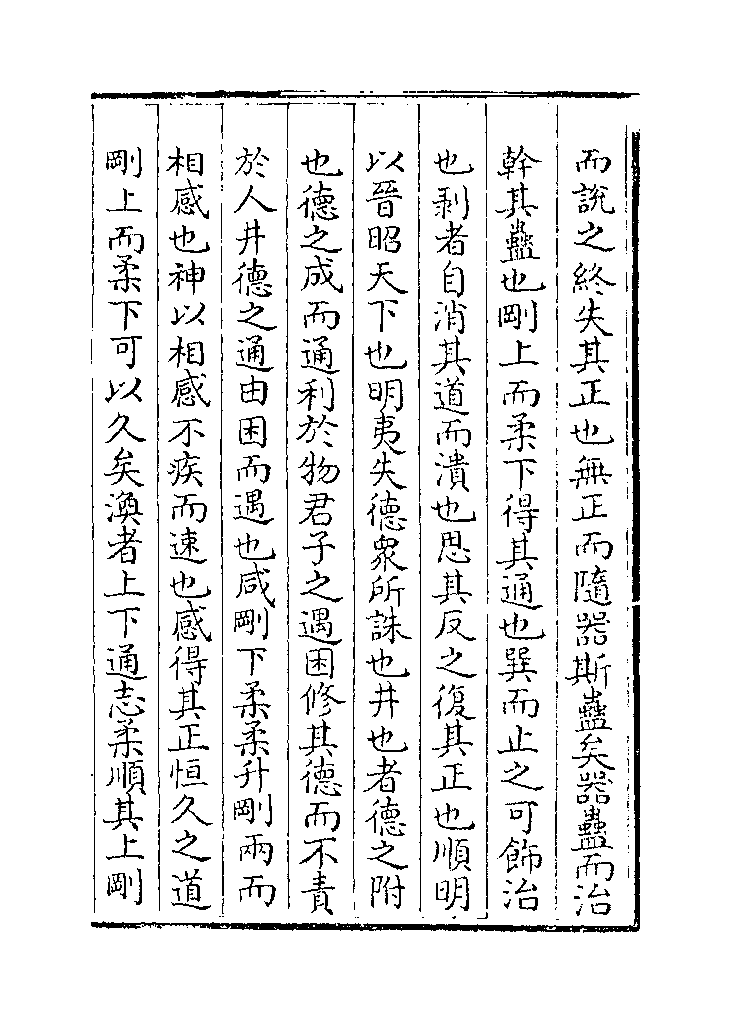 而說之終失其正也無正而隨器斯蠱矣器蠱而治
幹其蠱也剛上而柔下得其通也巽而止之可飾治
也剥者自消其道而潰也思其反之復其正也順明
以晉昭天下也明夷失德衆所誅也井也者德之附
也德之成而通利於物君子之遇困修其德而不責
於人井德之通由困而遇也咸剛下柔柔升剛兩而
相感也神以相感不疾而速也感得其正恒久之道
剛上而柔下可以久矣渙者上下通志柔順其上剛